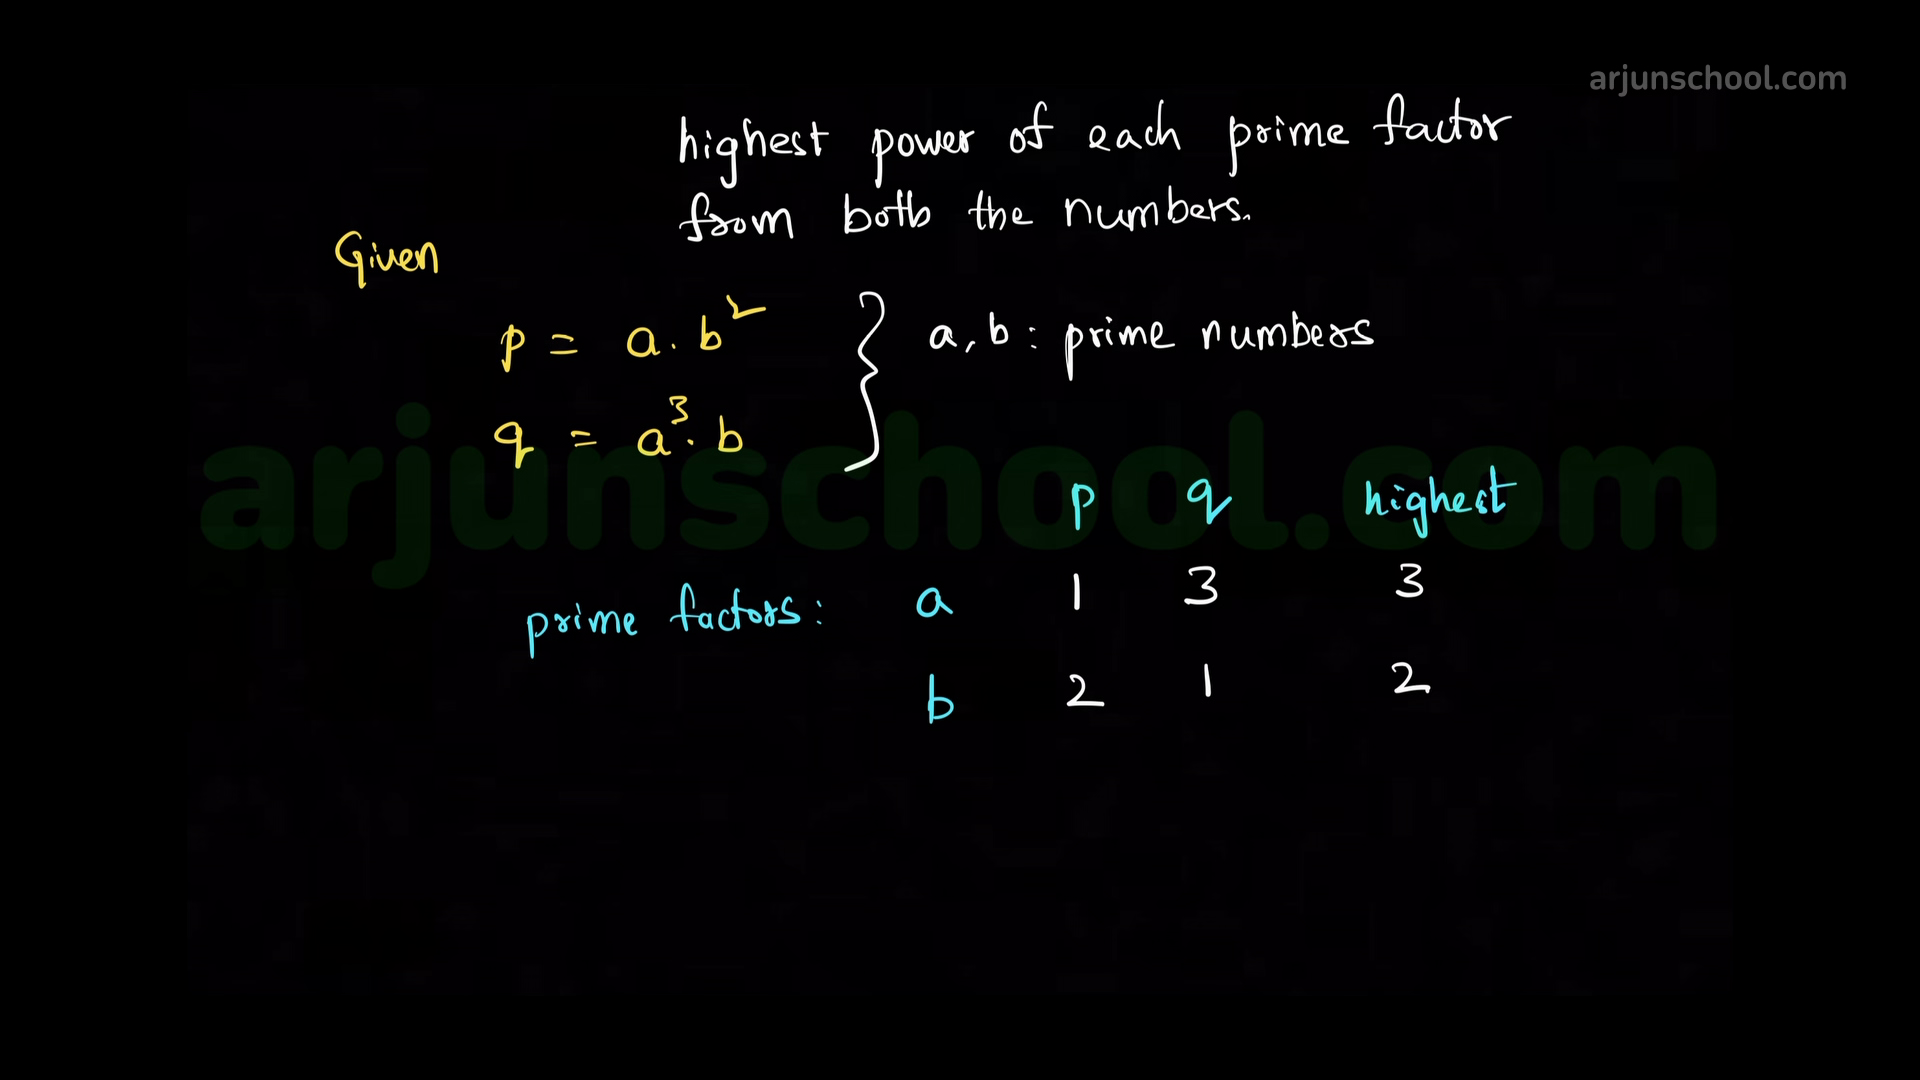 arjunschool.com
highest power of each prime factor
from both the numbers.
Given
p = a. b²
q = a³. b
a, b : prime numbers
arjunschool.com
p q highest
prime factors: a 1 3 3
b 2 1 2